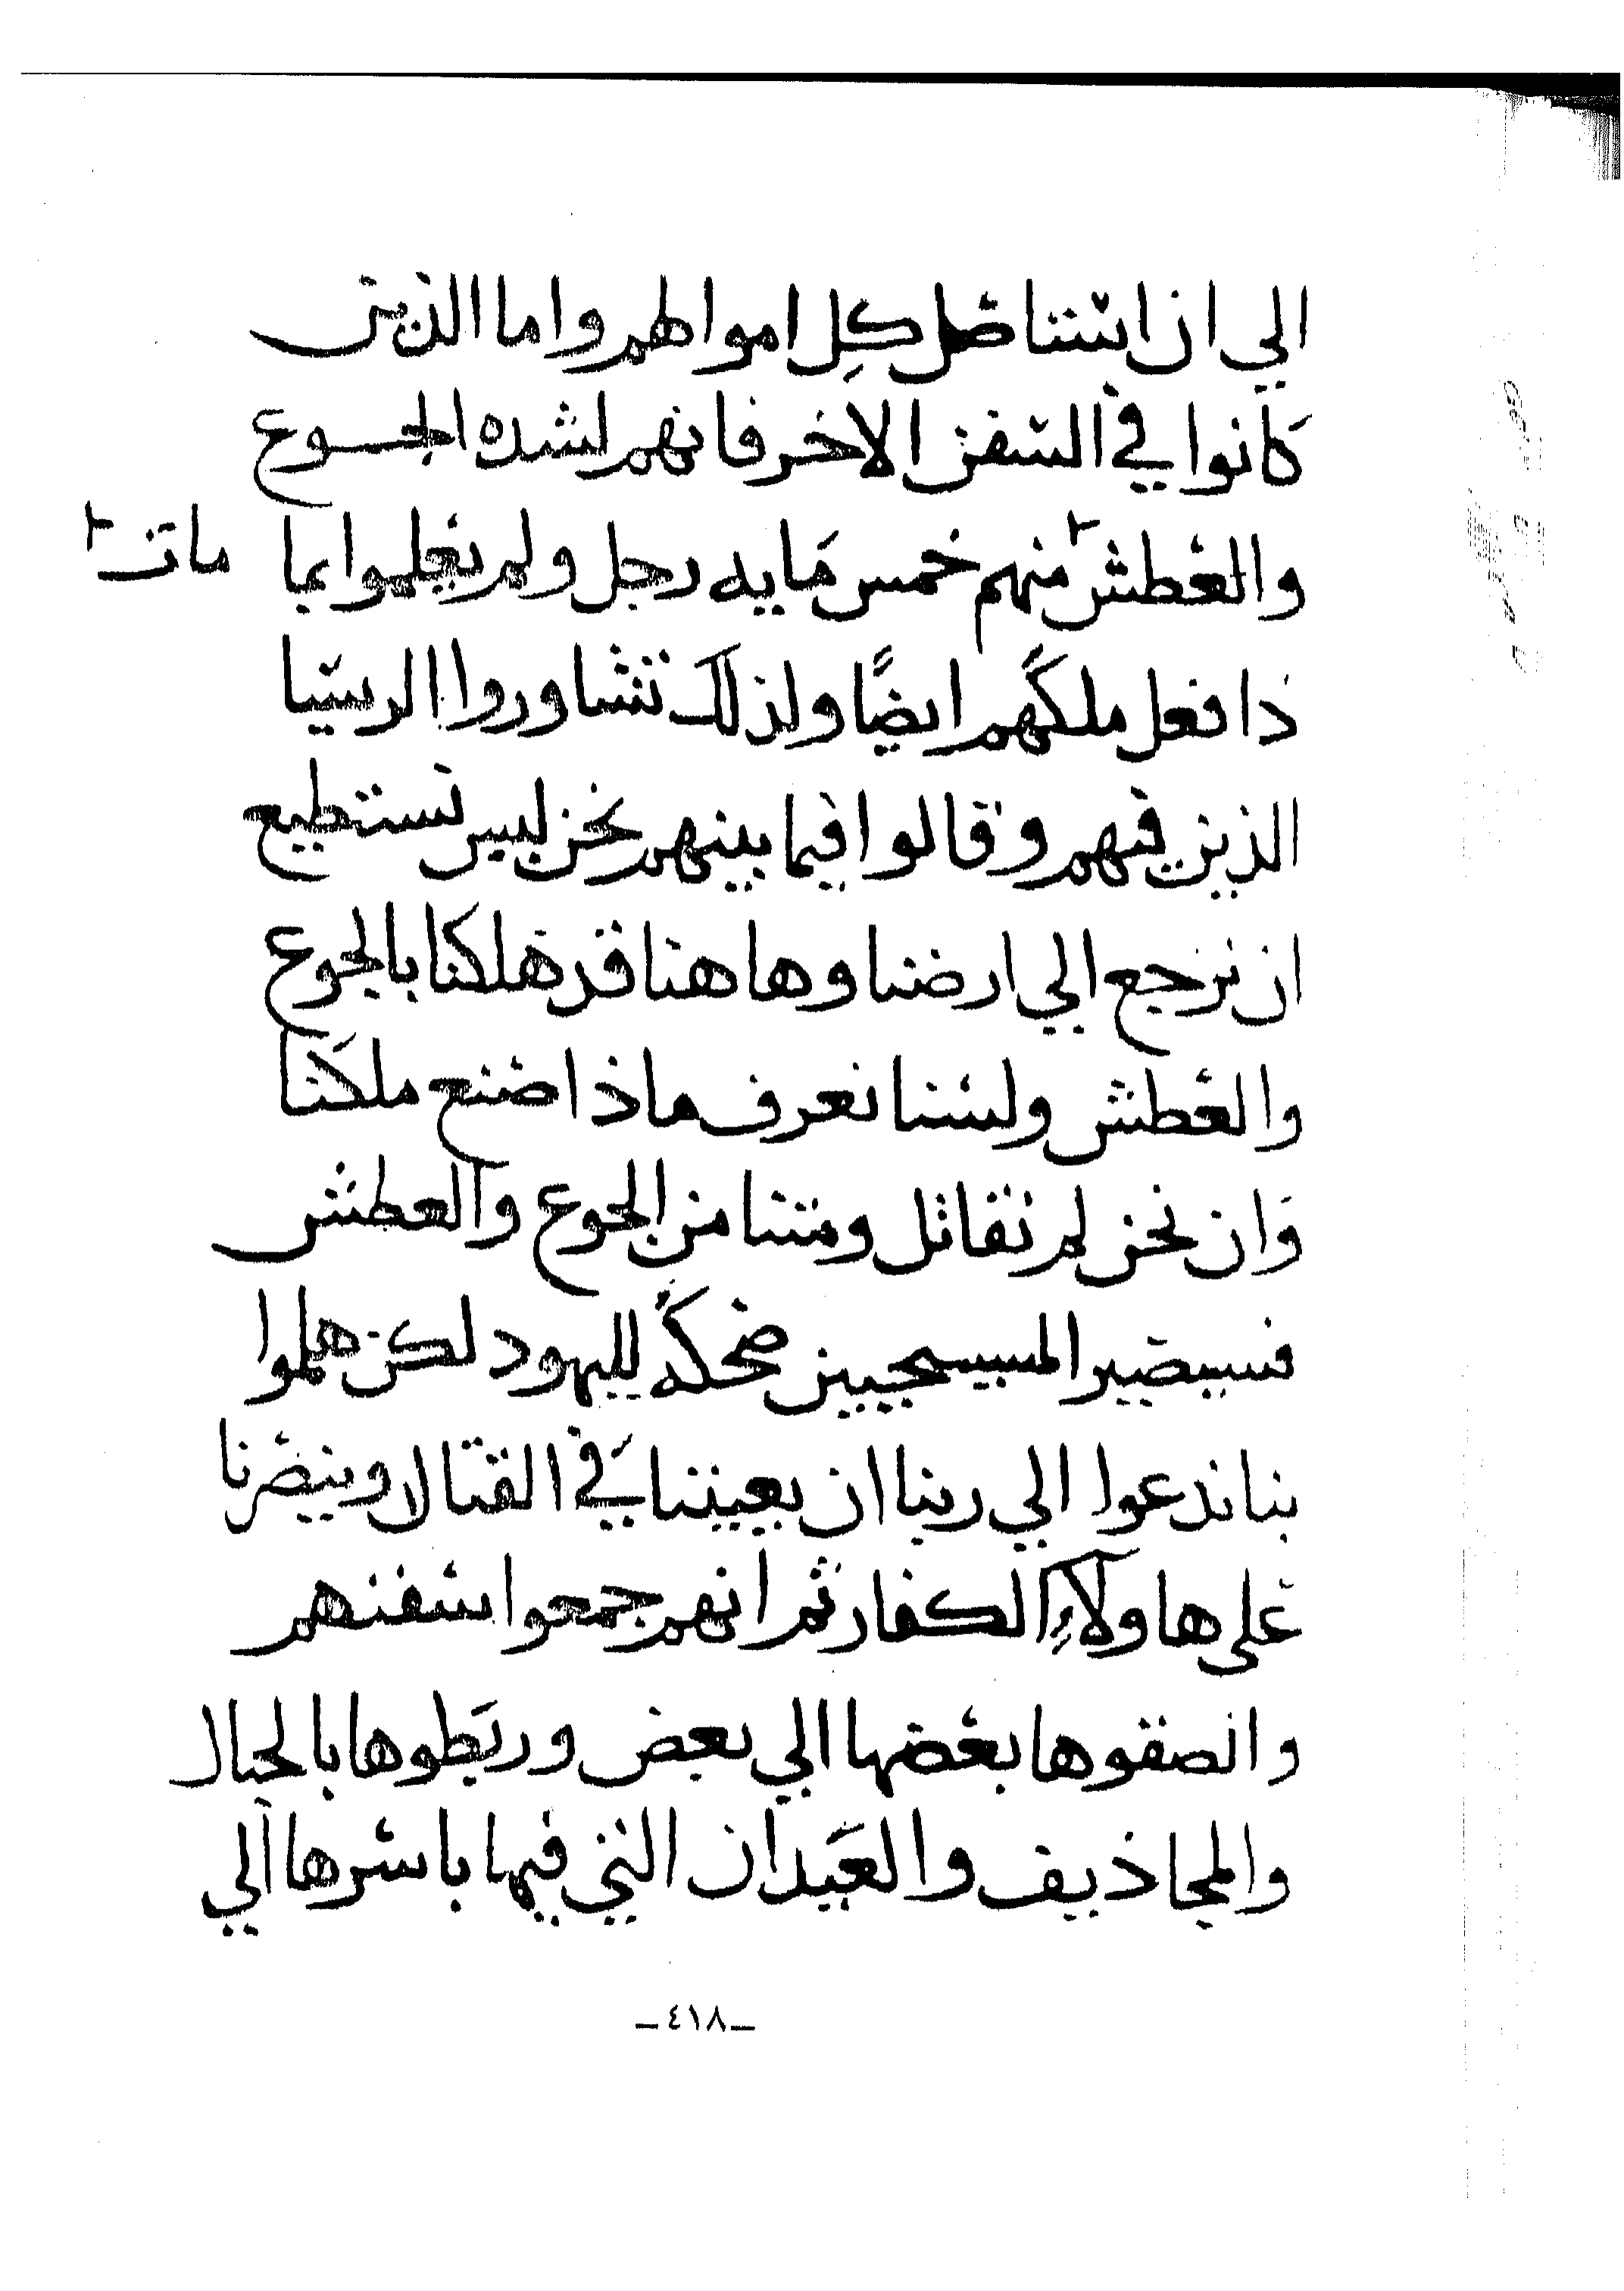 الي ان استناصل كل اموالهم واما الذين
كانوا في السفن الاخر فانهم لشده الجوع
والعطش منهم خمس مايه رجل ولم يعلموا بما مات
ذا فعل ملكهم ايضًا ولذلك تشاوروا الرسيا
الذين فيهم وقالوا فيما بينهم نحن ليس نستطيع
ان نرجع الي ارضنا وها هنا قد هلكنا بالجوع
والعطش ولسنا نعرف ماذا صنع ملكنا
وان نحن لم نقاتل ومتنا من الجوع والعطش
فسيصير المسيحيين ضحكةً لليهود لكن هلموا
بنا ندعوا الي ربنا ان يعيننا في القتال وينصرنا
علي هاولآءِ الكفار ثم انهم جمعوا سفنهم
والصقوها بعضها الي بعض وربطوها بالحبال
والمجاذيف والعيدان التي فيها باسرها الي
_٤١٨_